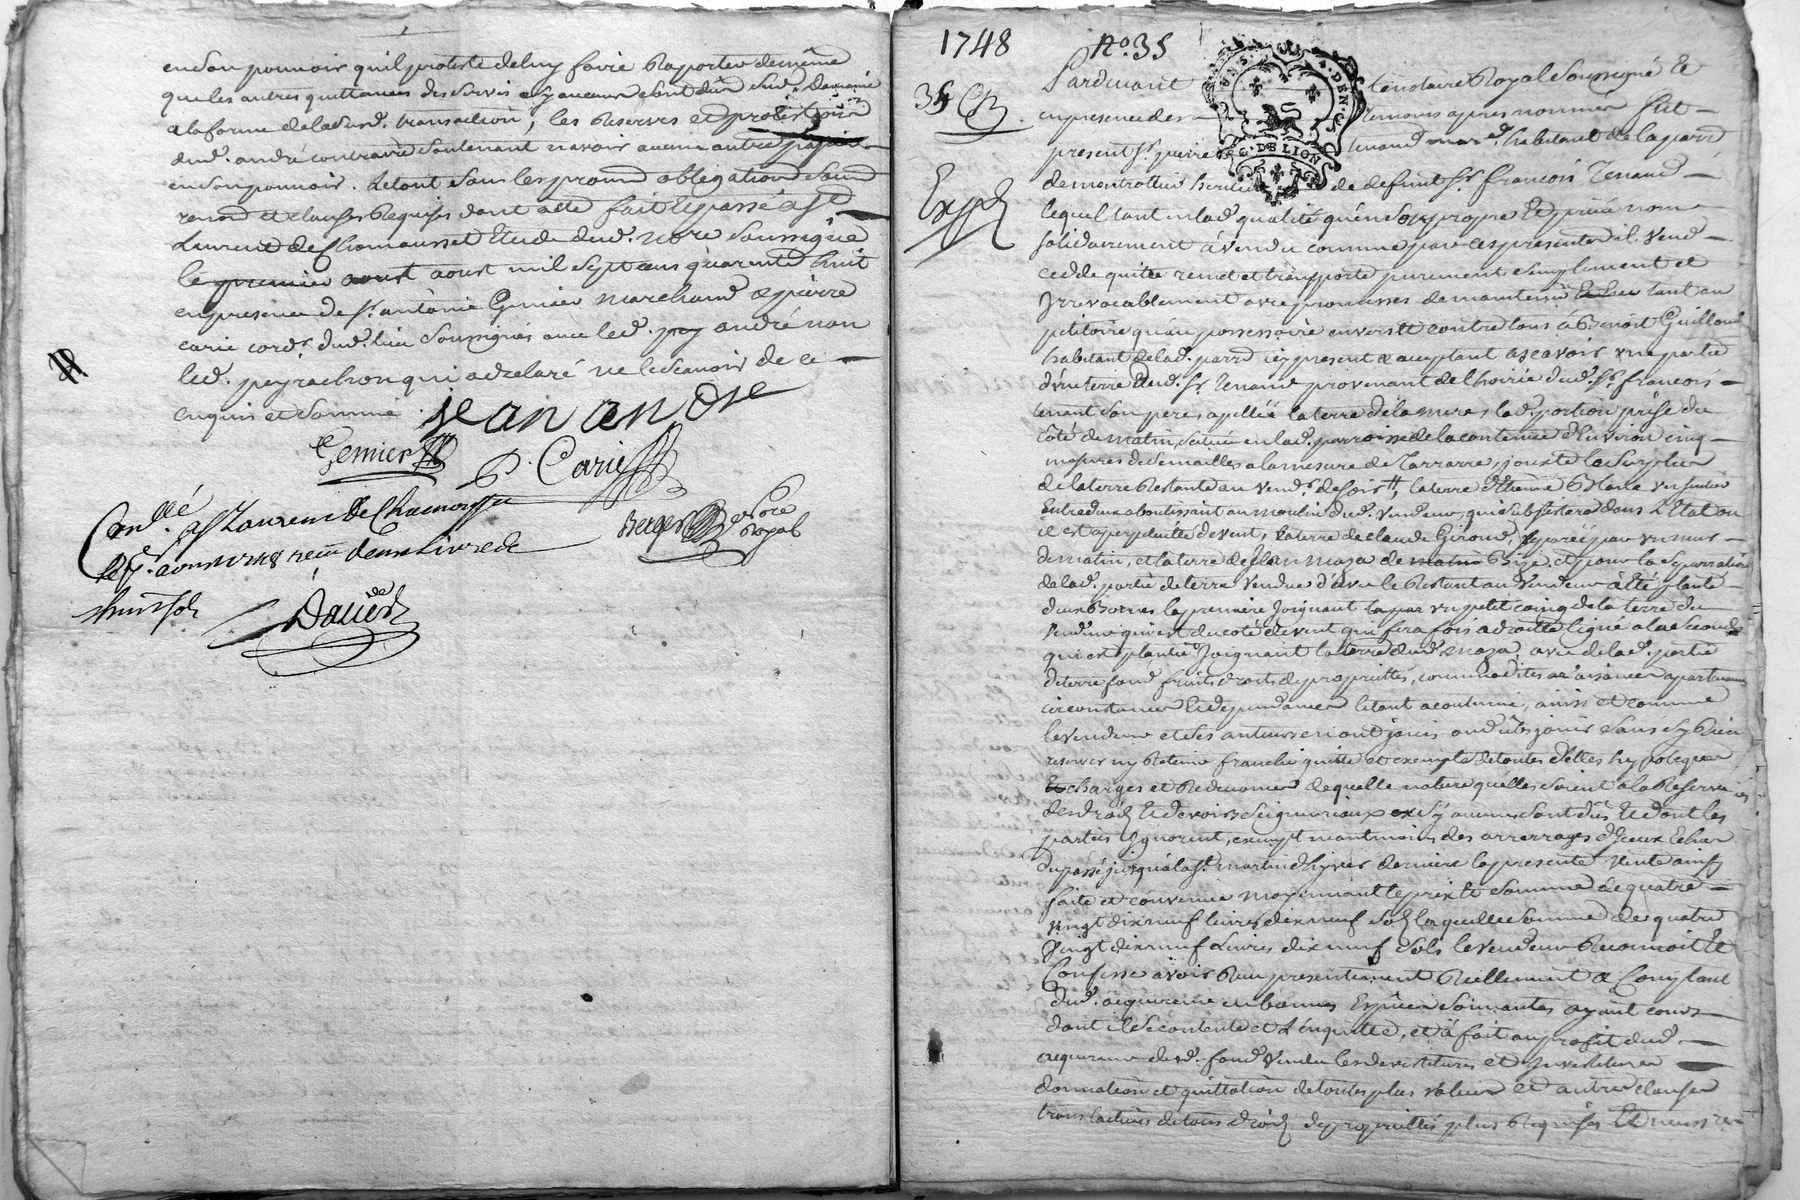 en son pouvoir quil proteste de luy faire Raporter de même
que les autres quittances des servis sy aucuns sont dûs
a la forme de lad. transaction, les Reserves et
dud. andré contraire soutenant n'avoir aucun autre papier
en son pouvoir. Le tout sous les promes obligations soum
renond et clauses Requises dont acte fait et passé a St
Laurent de Chamousset Etude dud. no.re soussigné
le premier aoust mil sept cens quarente huit
en presence de Sr. antoine Gemier marchand et pierre
carie cord.r dud. lieu soussignés avec led. andré non
led. peyrachon qui a declaré ne le scavoir de ce
enquis et sommé
jean andre
Gemier
P. Carie
Berger no.re Royal
Con.llé a St Laurent de Chamousset
le 7e. aoust 1748
David
1748 No. 35
35
Expd.
Pardevant le notaire Royal soussigné Et
en presence des temoins apres nommes fut
present Sr. pierre Tenand mar.d habitant de la parr.
de montrottier heritier de defunt Sr. françois Tenand
lequel tant en lad. qualité qu'en son propre Et privé nom
solidairement a vendu comme par ces presentes il vend
cedde quitte remet et transporte purement simplement et
Irrevocablement avec promesses de maintenir tant au
petitoire qu'au possessoire envers et contre tous a Benoit Guillout
habitant de lad. parr. icy present et acceptant ascavoir une partie
d'une terre dud. Sr. Tenand provenant de l'hoirie dud. Sr. françois
tenand son pere, apellée la terre de la mure, lad. portion prise du
côté de matin, située en lad. parroisse de la contenue d'environ cinq
mesures de semailles a la mesure de Tarrare, jouxte le surplus
de la terre Restante au vend.r de soir, la terre d'Etienne un sentier
entre deux aboutissant au moulin dud. vendeur, qui subsistera dans L'Etat ou
il est a perpetuité de vent, la terre de claude Giroud, separée par un mur
de matin, et la terre de maza de bize, et pour la separration
de lad. partie de terre vendue d'avec le Restant au vendeur a été planté
deux bornes la premiere joignant un petit coing de la terre du
vendeur qui est du coté de vent qui fera fois a droitte ligne a la seconde
qui est plantée joignant la terre dud. maza, avec de lad. partie
de terre fond fruits droits de proprietés, commodités et aisances apartenances
circonstances et dependances le tout acoutumé, ainsi et comme
le vendeur et ses auteurs en ont jouis ou dû jouir sans sy Rien
reserver ny Retenir franche quitte et exempte de toutes dettes hypoteques
charges et Redevances de quelle nature quelles soient a la Reserve
des droits Et devoirs seigneuriaux sy aucuns sont dûs Et dont les
parties Ignorent, exempt neantmoins des arrerages d'Iceux Echus
du passé jusqu'a la St. martin d'hyver derniere la presente vente ainsy
faite et convenue moyennant le prix Et somme de quatre
vingt dix neuf livres dix neuf sols laquelle somme de quatre
vingt dix neuf Livres dix neuf sols le vendeur Reconnoit Et
Confesse avoir Reçu presentement Reellement et Comptant
dud. acquereur en bonnes Especes sonnantes ayant cours
dont il se contente et L'en quitte, et a fait au profit dud.
acquereur dud. fond vendu les devestitures et Investitures
donnation et quittation de toutes plus values et autres clauses
translatives de tous droits de proprietés plus Requises Et